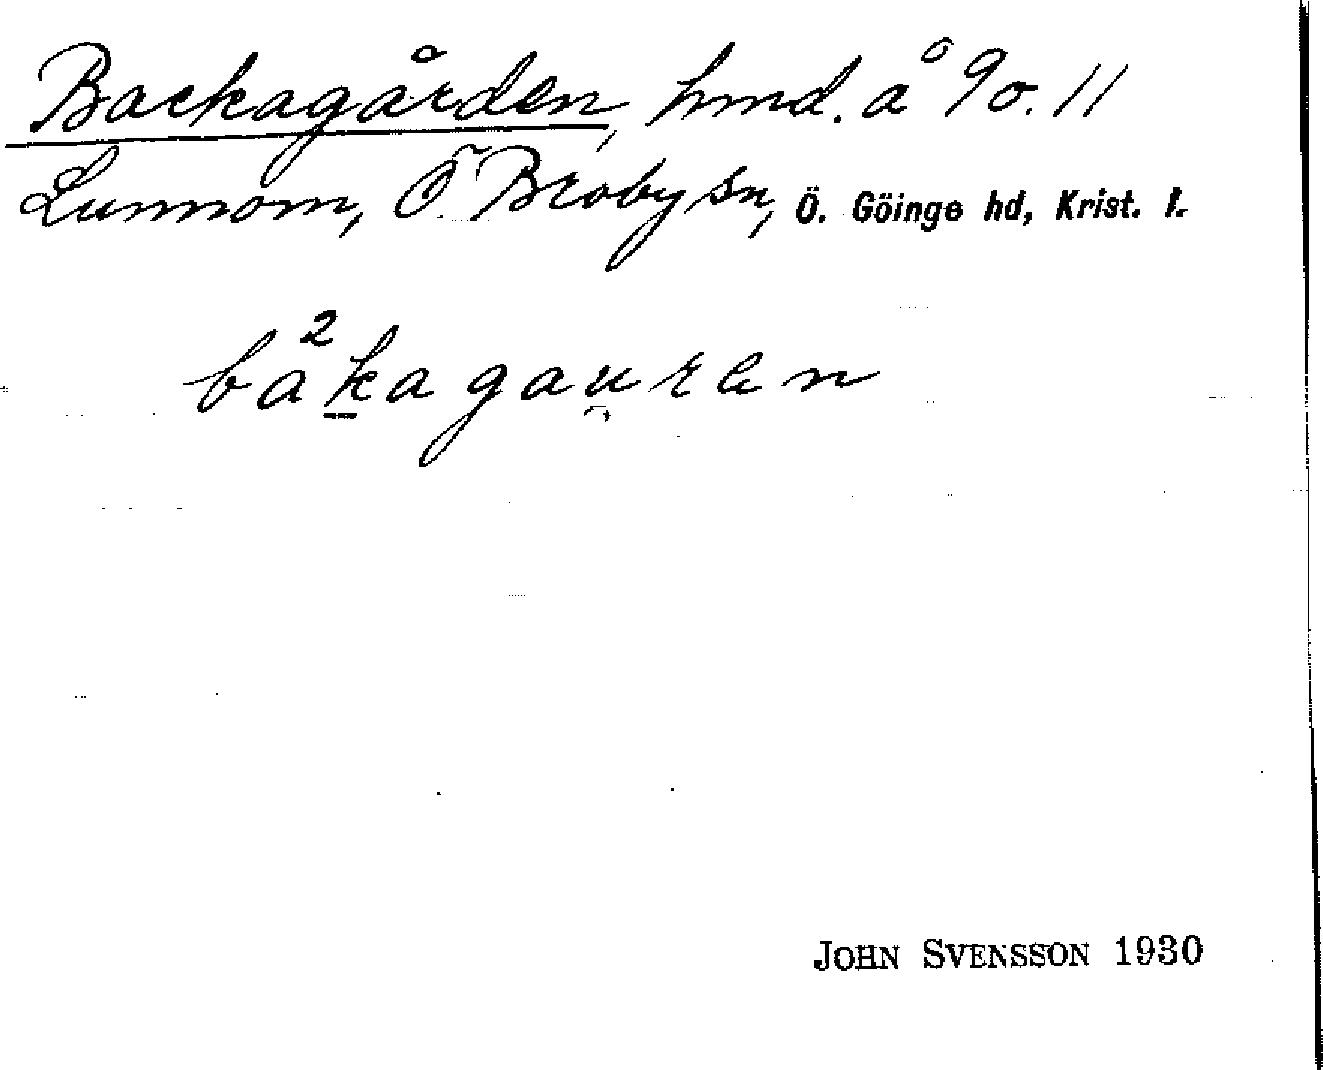 Backagården, hmd. å No. 11
Lunnom, Ö. Broby sn, Ö. Göinge hd, Krist. l.
ba²k̲agau̯ren
JOHN SVENSSON 1930